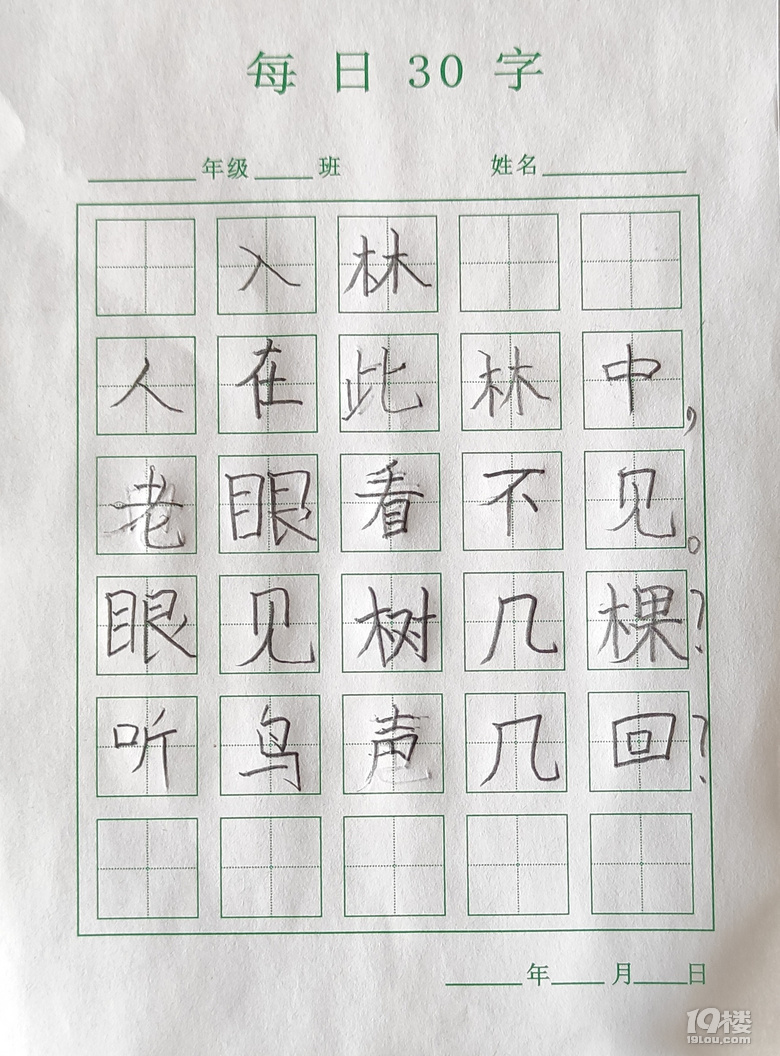 每日30字
年级 班 姓名
入林
人在此林中，
老眼看不见。
眼见树几棵？
听鸟声几回？
年 月 日
19楼
19lou.com